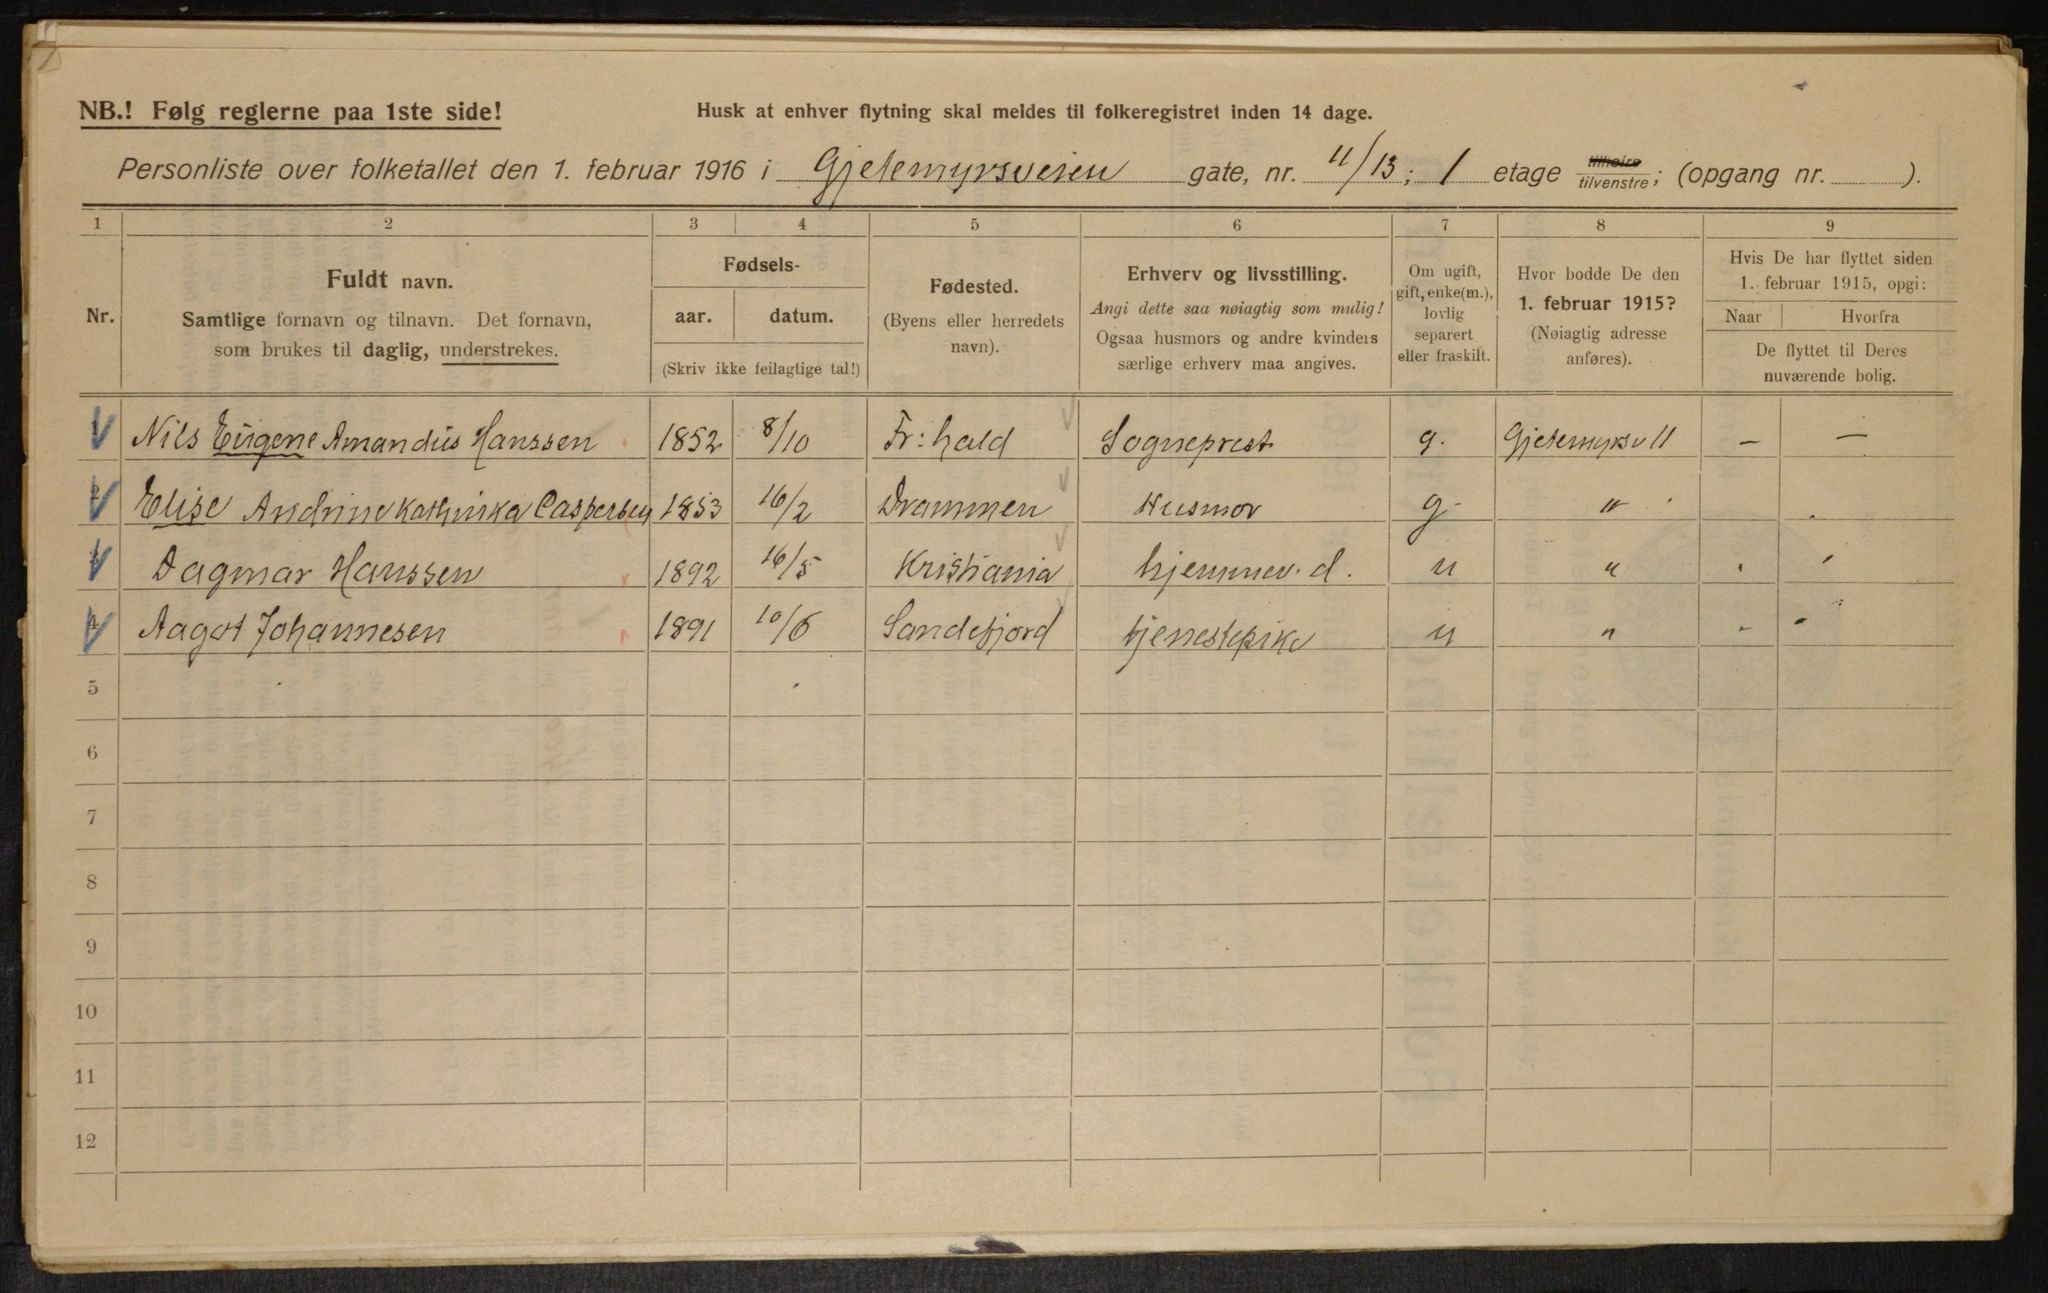 NB.! Følg reglerne paa 1ste side!
Husk at enhver flytning skal meldes til folkeregistret inden 14 dage.
Personliste over folketallet den 1. februar 1916 i Gjetemyrsveien gate, nr. 11/13; 1 etage tilhøire tilvenstre; (opgang nr. ).
1 2 3 4 5 6 7 8 9
Nr.
Fuldt navn.
Samtlige fornavn og tilnavn. Det fornavn,
som brukes til daglig, understrekes.
Fødsels-
aar. datum.
(Skriv ikke feilagtige tal!)
Fødested.
(Byens eller herredets
navn).
Erhverv og livsstilling.
Angi dette saa nøiagtig som mulig!
Ogsaa husmors og andre kvinders
særlige erhverv maa angives.
Om ugift,
gift, enke(m.),
lovlig
separert
eller fraskilt.
Hvor bodde De den
1. februar 1915?
(Nøiagtig adresse
anføres).
Hvis De har flyttet siden
1. februar 1915, opgi:
Naar Hvorfra
De flyttet til Deres
nuværende bolig.
1 Nils Eugene Amandus Hanssen 1852 8/10 Fr: hald Sogneprest g. Gjetemyrsv 11 — —
2 Elise Andrine Kathinka Caspersen 1853 16/2 Drammen Husmor g- "
3 Dagmar Hanssen 1892 16/5 Kristiania hjemmev. d. u "
4 Aagot Johannesen 1891 10/6 Sandefjord tjenestepike u "
5
6
7
8
9
10
11
12